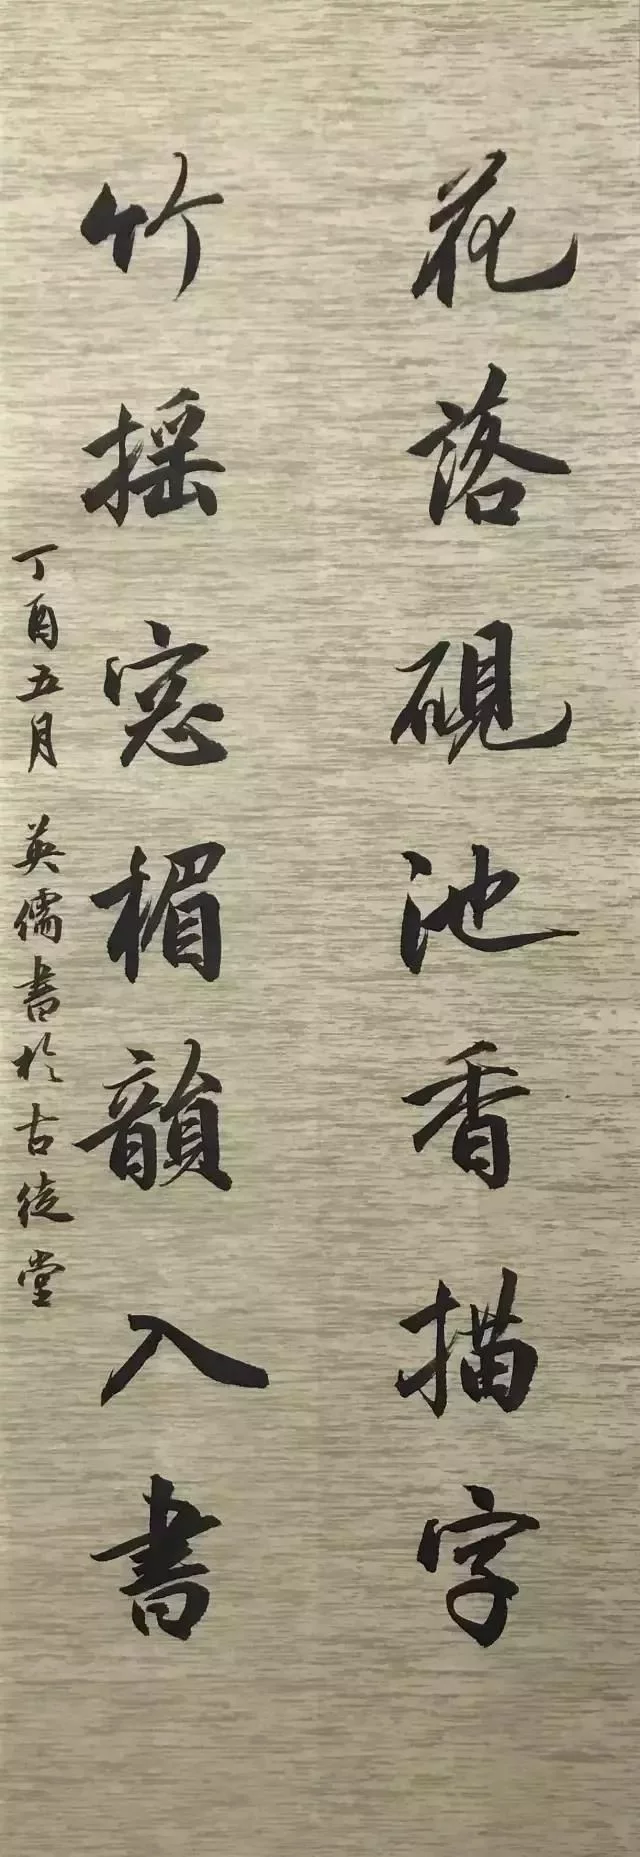 花落硯池香描字
竹摇窓楣韻入書
丁酉五月 英儒書於古徒堂